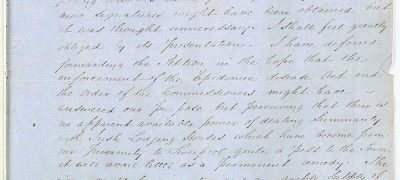 more signatures might have been obtained but
it was thought unnecessary. I shall feel greatly
obliged by its Presentation. I have defered
forwarding the Petition in the hope that the
enforcement of the Epedemic disease Act and
the Order of the Commissioners might have
answered our pur pose but perceiving that there is
no apparent available power of dealing Summarily
with Irish Lodging Houses which have become from
our proximity to Liverpool quite a Pest to the Town
it will avail little, as a Permanent remedy. The
of